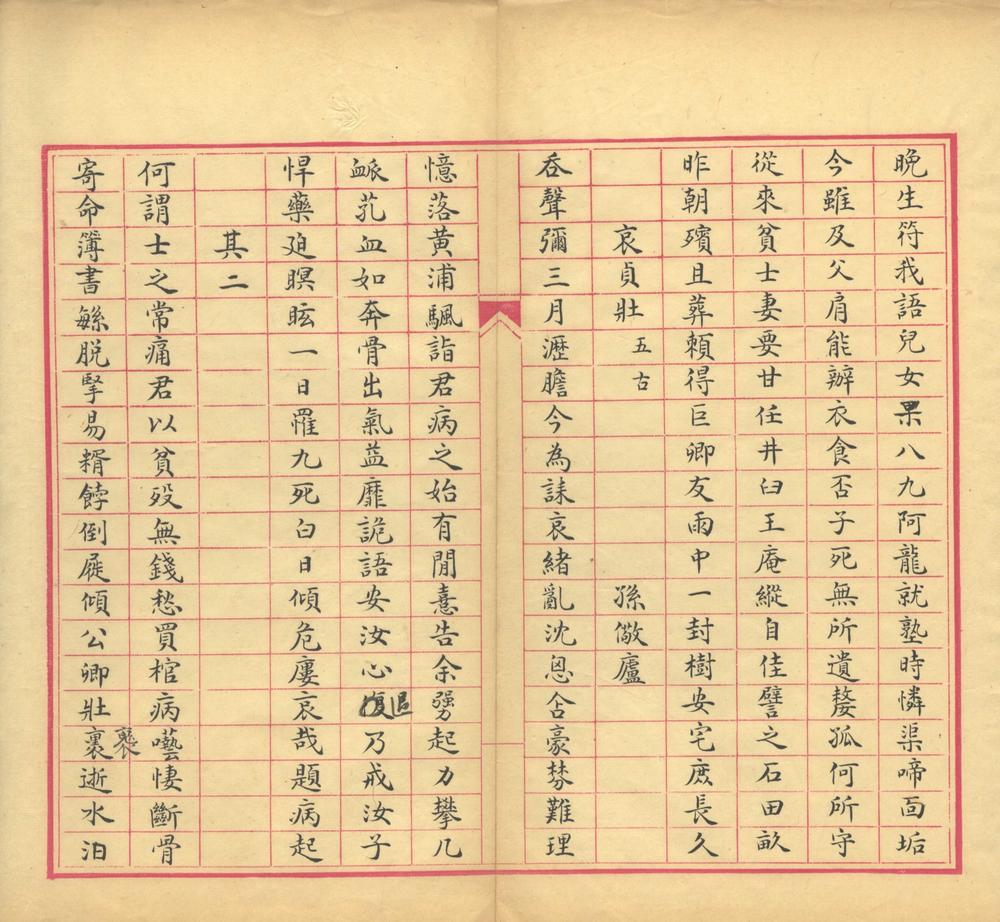 晚生符我語兒女果八九阿龍就塾時憐渠啼面垢
今雖及父肩能辦衣食否子死無所遺嫠孤何所守
從來貧士妻要甘任井臼王庵縱自佳譬之石田畝
昨朝殯且葬賴得巨卿友雨中一封樹安宅庶長久
哀貞壯 五古 孫儆廬
吞聲彌三月瀝膽今為誄哀緒亂沈恩含豪棼難理
憶落黃浦颿詣君病之始有閒憙告余勥起力攀几
衇芤血如奔骨出氣益靡詭語安汝心復乃戒汝子
悍藥廹瞑眩一日罹九死白日傾危廔哀哉題病起
其二
何謂士之常痛君以貧歿無錢愁買棺病囈悽斷骨
寄命簿書緐脱擊易糈餑倒屣傾公卿壯裏逝水汨